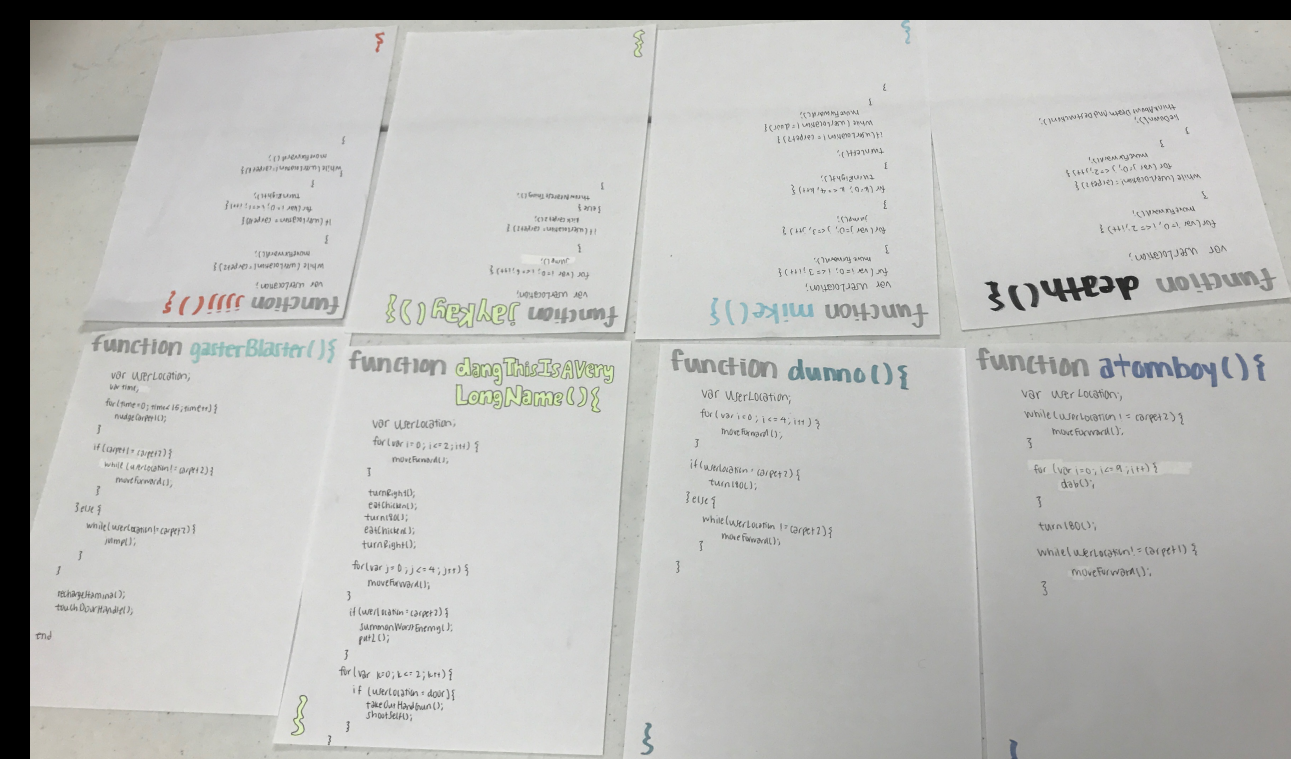 function jjjj(){
var userLocation;
while (userLocation != carpet2) {
moveForward();
}
if (userLocation = carpet2) {
for (var i=0; i<=1; i++) {
turnRight();
}
while (userLocation != carpet2) {
moveForward();
}
}
function jayKay(){
var userLocation;
for (var i=0; i<=6; i++) {
jump();
}
if (userLocation = carpet2) {
kick carpet2();
} else {
}
}
function mike(){
var userLocation;
for (var i=0; i<=3; i++) {
move forward();
}
for (var j=0; j<=3; j++) {
jump();
}
for (k=0; k<=4; k++) {
turnRight();
}
turnLeft();
if (userLocation != carpet2) {
while (userLocation != door) {
moveForward();
}
}
}
function death(){
var userLocation;
for (var i=0; i<=2; i++) {
moveForward();
}
while (userLocation != carpet2) {
for (var j=0; j<=2; j++) {
moveForward();
}
}
lieDown();
thinkAboutDeathAndDarkness();
function gasterBlaster(){
var userLocation;
var time;
for (time=0; time< 15; time++) {
nudgeCarpet1();
}
if (carpet1= carpet2) {
while (userLocation != carpet2) {
moveForward();
}
} else {
while (userLocation != carpet2) {
jump();
}
}
rechargeStamina();
touchDoorHandle();
end
function dangThisIsAVery
LongName(){
var userLocation;
for (var i=0; i<=2; i++) {
moveForward();
}
turnRight();
eatChicken();
turn180();
eatChicken();
turnRight();
for (var j=0; j<=4; j++) {
moveForward();
}
if (userLocation = carpet2) {
summonWorstEnemy();
putL();
}
for (var k=0; k<=2; k++) {
if (userLocation = door) {
takeOutHandGun();
shootSelf();
}
}
}
function dunno(){
var userLocation;
for (var i=0; i<=4; i++) {
moveForward();
}
if (userLocation = carpet2) {
turn180();
} else {
while (userLocation != carpet2) {
moveForward();
}
}
}
function atomboy(){
var userLocation;
while (userLocation != carpet2) {
moveForward();
}
for (var i=0; i<=9; i++) {
dab();
}
turn180();
while (userLocation != carpet1) {
moveForward();
}